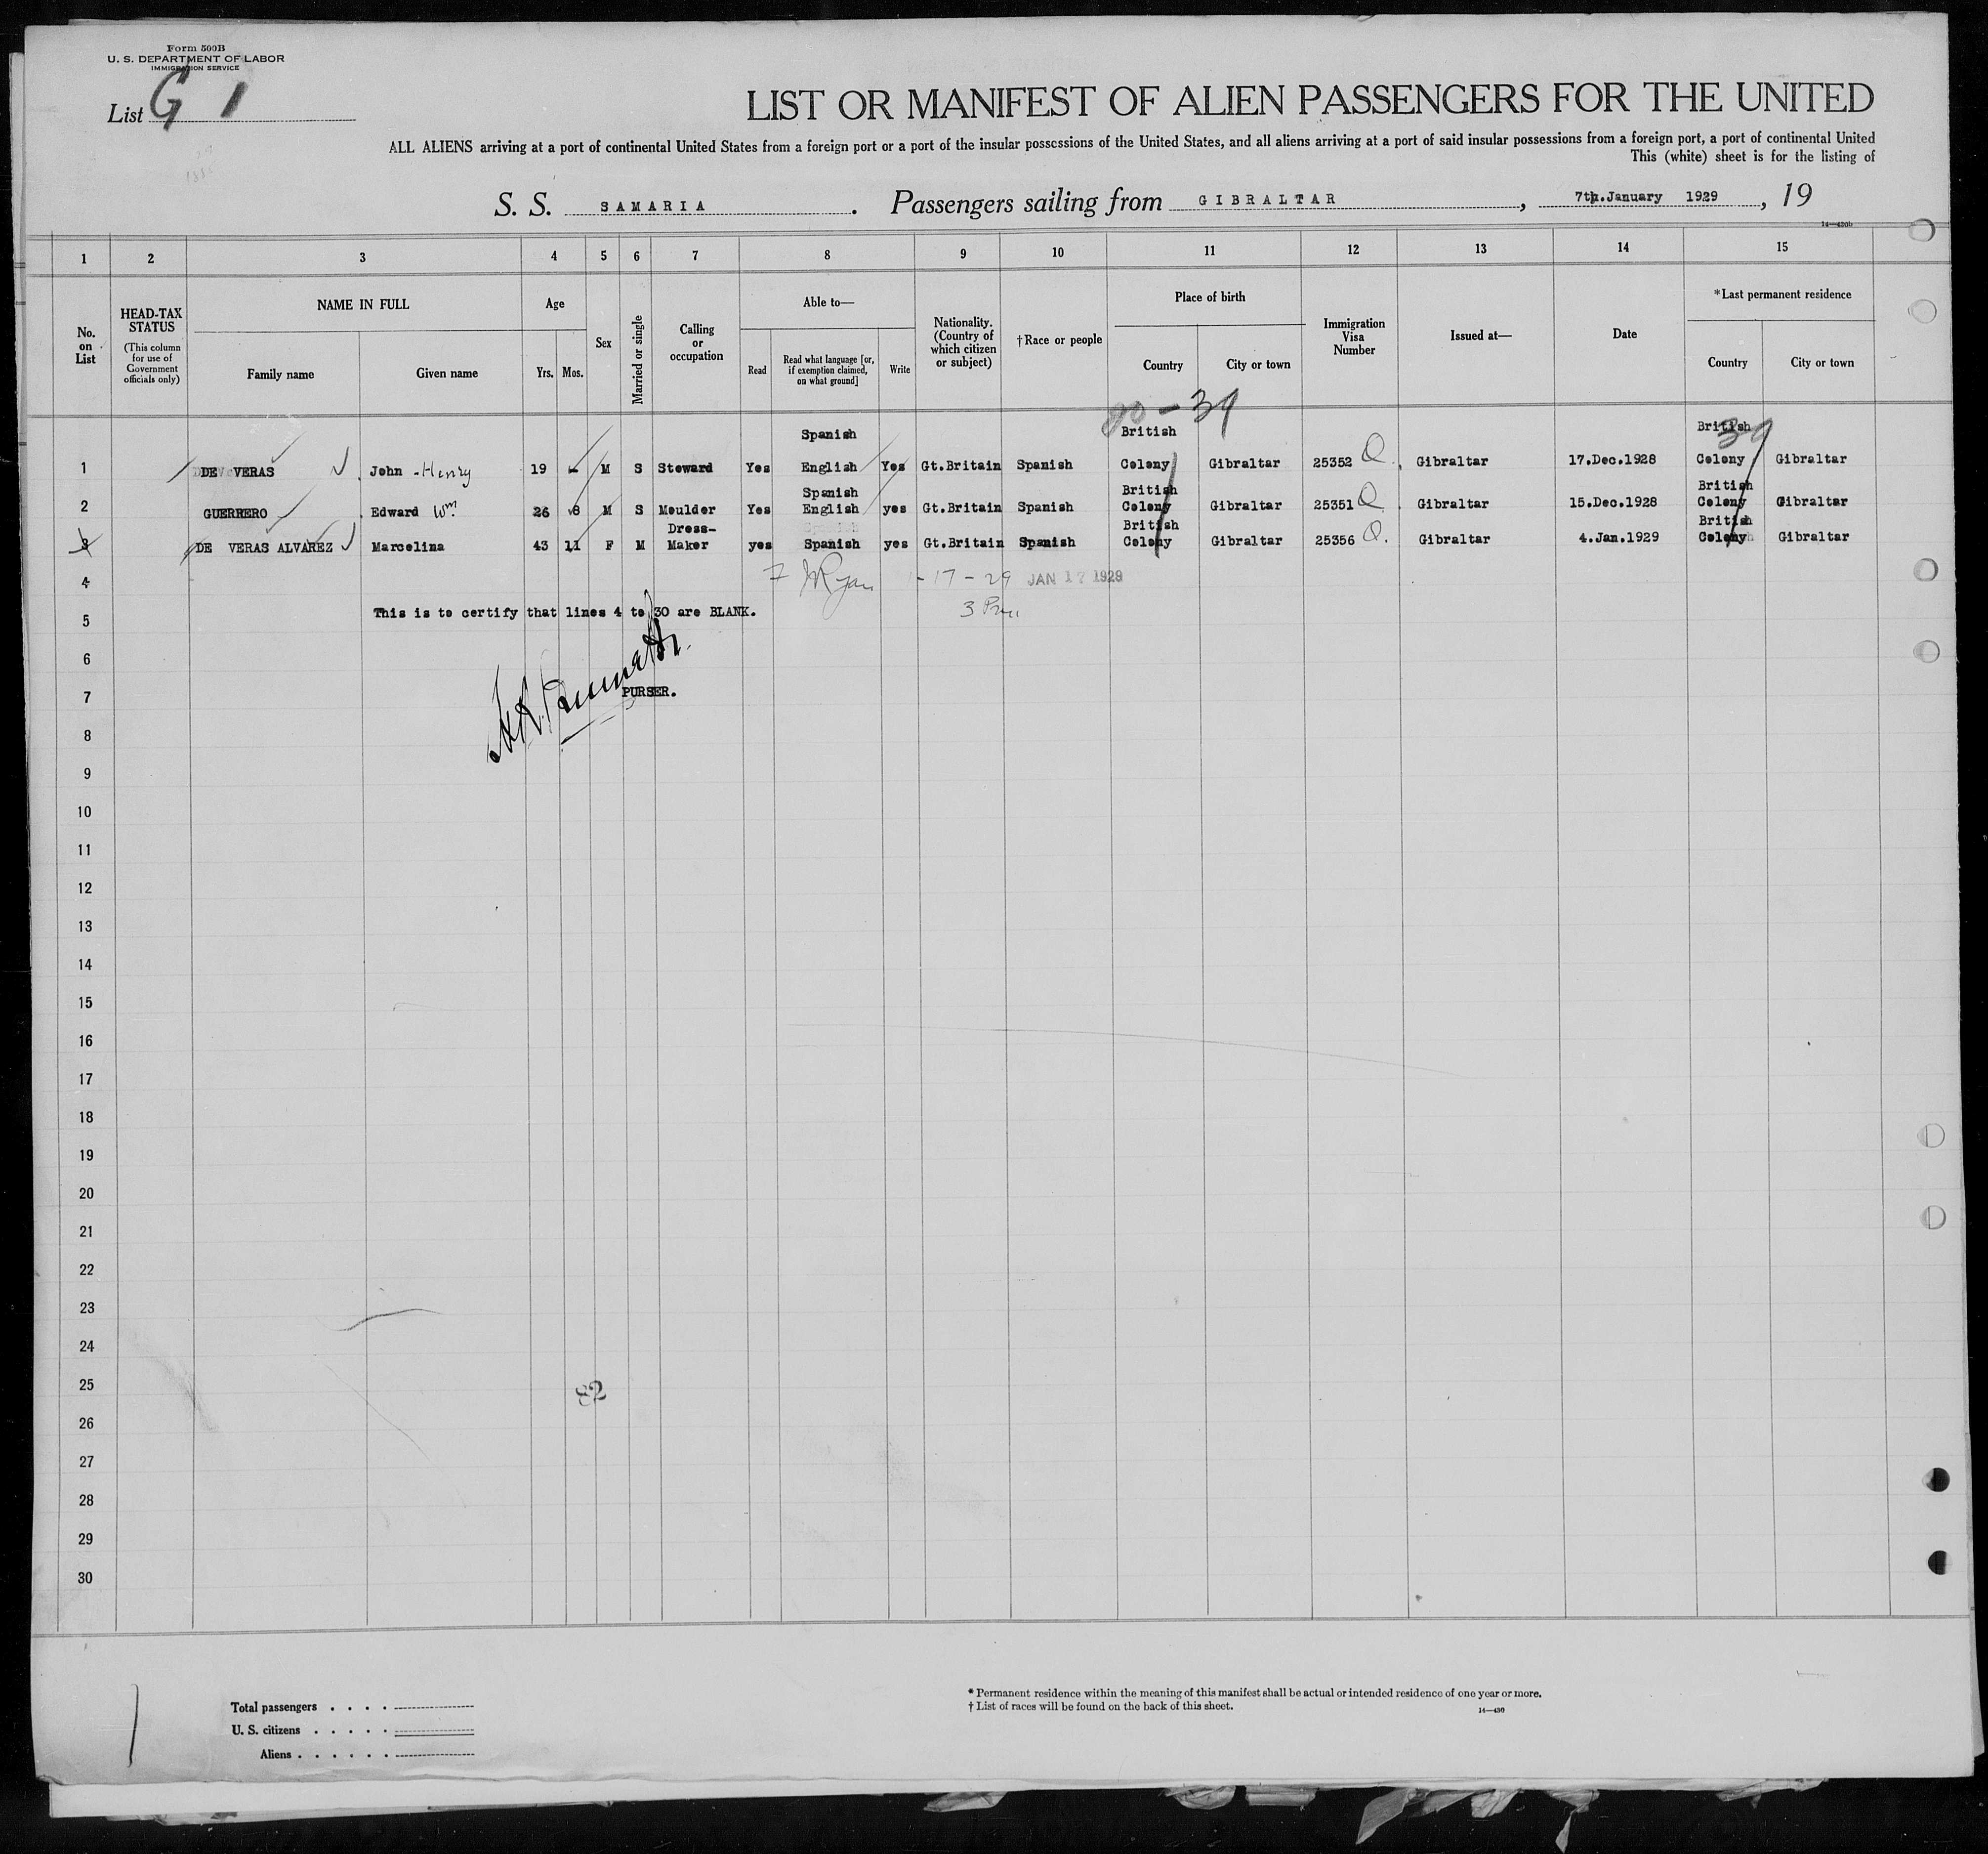 Form 500B
U. S. DEPARTMENT OF LABOR
IMMIGRATION SERVICE
List G 1
LIST OR MANIFEST OF ALIEN PASSENGERS FOR THE UNITED
ALL ALIENS arriving at a port of continental United States from a foreign port or a port of the insular possessions of the United States, and all aliens arriving at a port of said insular possessions from a foreign port, a port of continental United
This (white) sheet is for the listing of
S. S. SAMARIA. Passengers sailing from GIBRALTAR, 7th.January 1929, 19
14—430b
1 2 3 4 5 6 7 8 9 10 11 12 13 14 15
No. on List
HEAD-TAX STATUS
(This column for use of Government officials only)
NAME IN FULL
Family name
Given name
Age
Yrs. Mos.
Sex
Married or single
Calling or occupation
Able to—
Read
Read what language [or, if exemption claimed, on what ground]
Write
Nationality. (Country of which citizen or subject)
†Race or people
Place of birth
Country
City or town
Immigration Visa Number
Issued at—
Date
*Last permanent residence
Country
City or town
39
39
1 DE VERAS John - Henry 19 - M S Steward Yes Spanish English Yes Gt.Britain Spanish British Colony Gibraltar 25352 Q Gibraltar 17.Dec.1928 British Colony Gibraltar
2 GUERRERO Edward Wm. 26 8 M S Moulder Yes Spanish English yes Gt.Britain Spanish British Colony Gibraltar 25351 Q Gibraltar 15.Dec.1928 British Colony Gibraltar
3 DE VERAS ALVAREZ Marcelina 43 11 F M Dress-Maker yes Spanish yes Gt.Britain Spanish British Colony Gibraltar 25356 Q. Gibraltar 4.Jan.1929 British Colony Gibraltar
4
Ryan 1-17-29 JAN 17 1929
This is to certify that lines 4 to 30 are BLANK.
5
6
7
PURSER.
8
9
10
11
12
13
14
15
16
17
18
19
20
21
22
23
24
25
82
26
27
28
29
30
Total passengers . . . .
U. S. citizens . . . . .
Aliens . . . . . .
* Permanent residence within the meaning of this manifest shall be actual or intended residence of one year or more.
† List of races will be found on the back of this sheet.
14—430